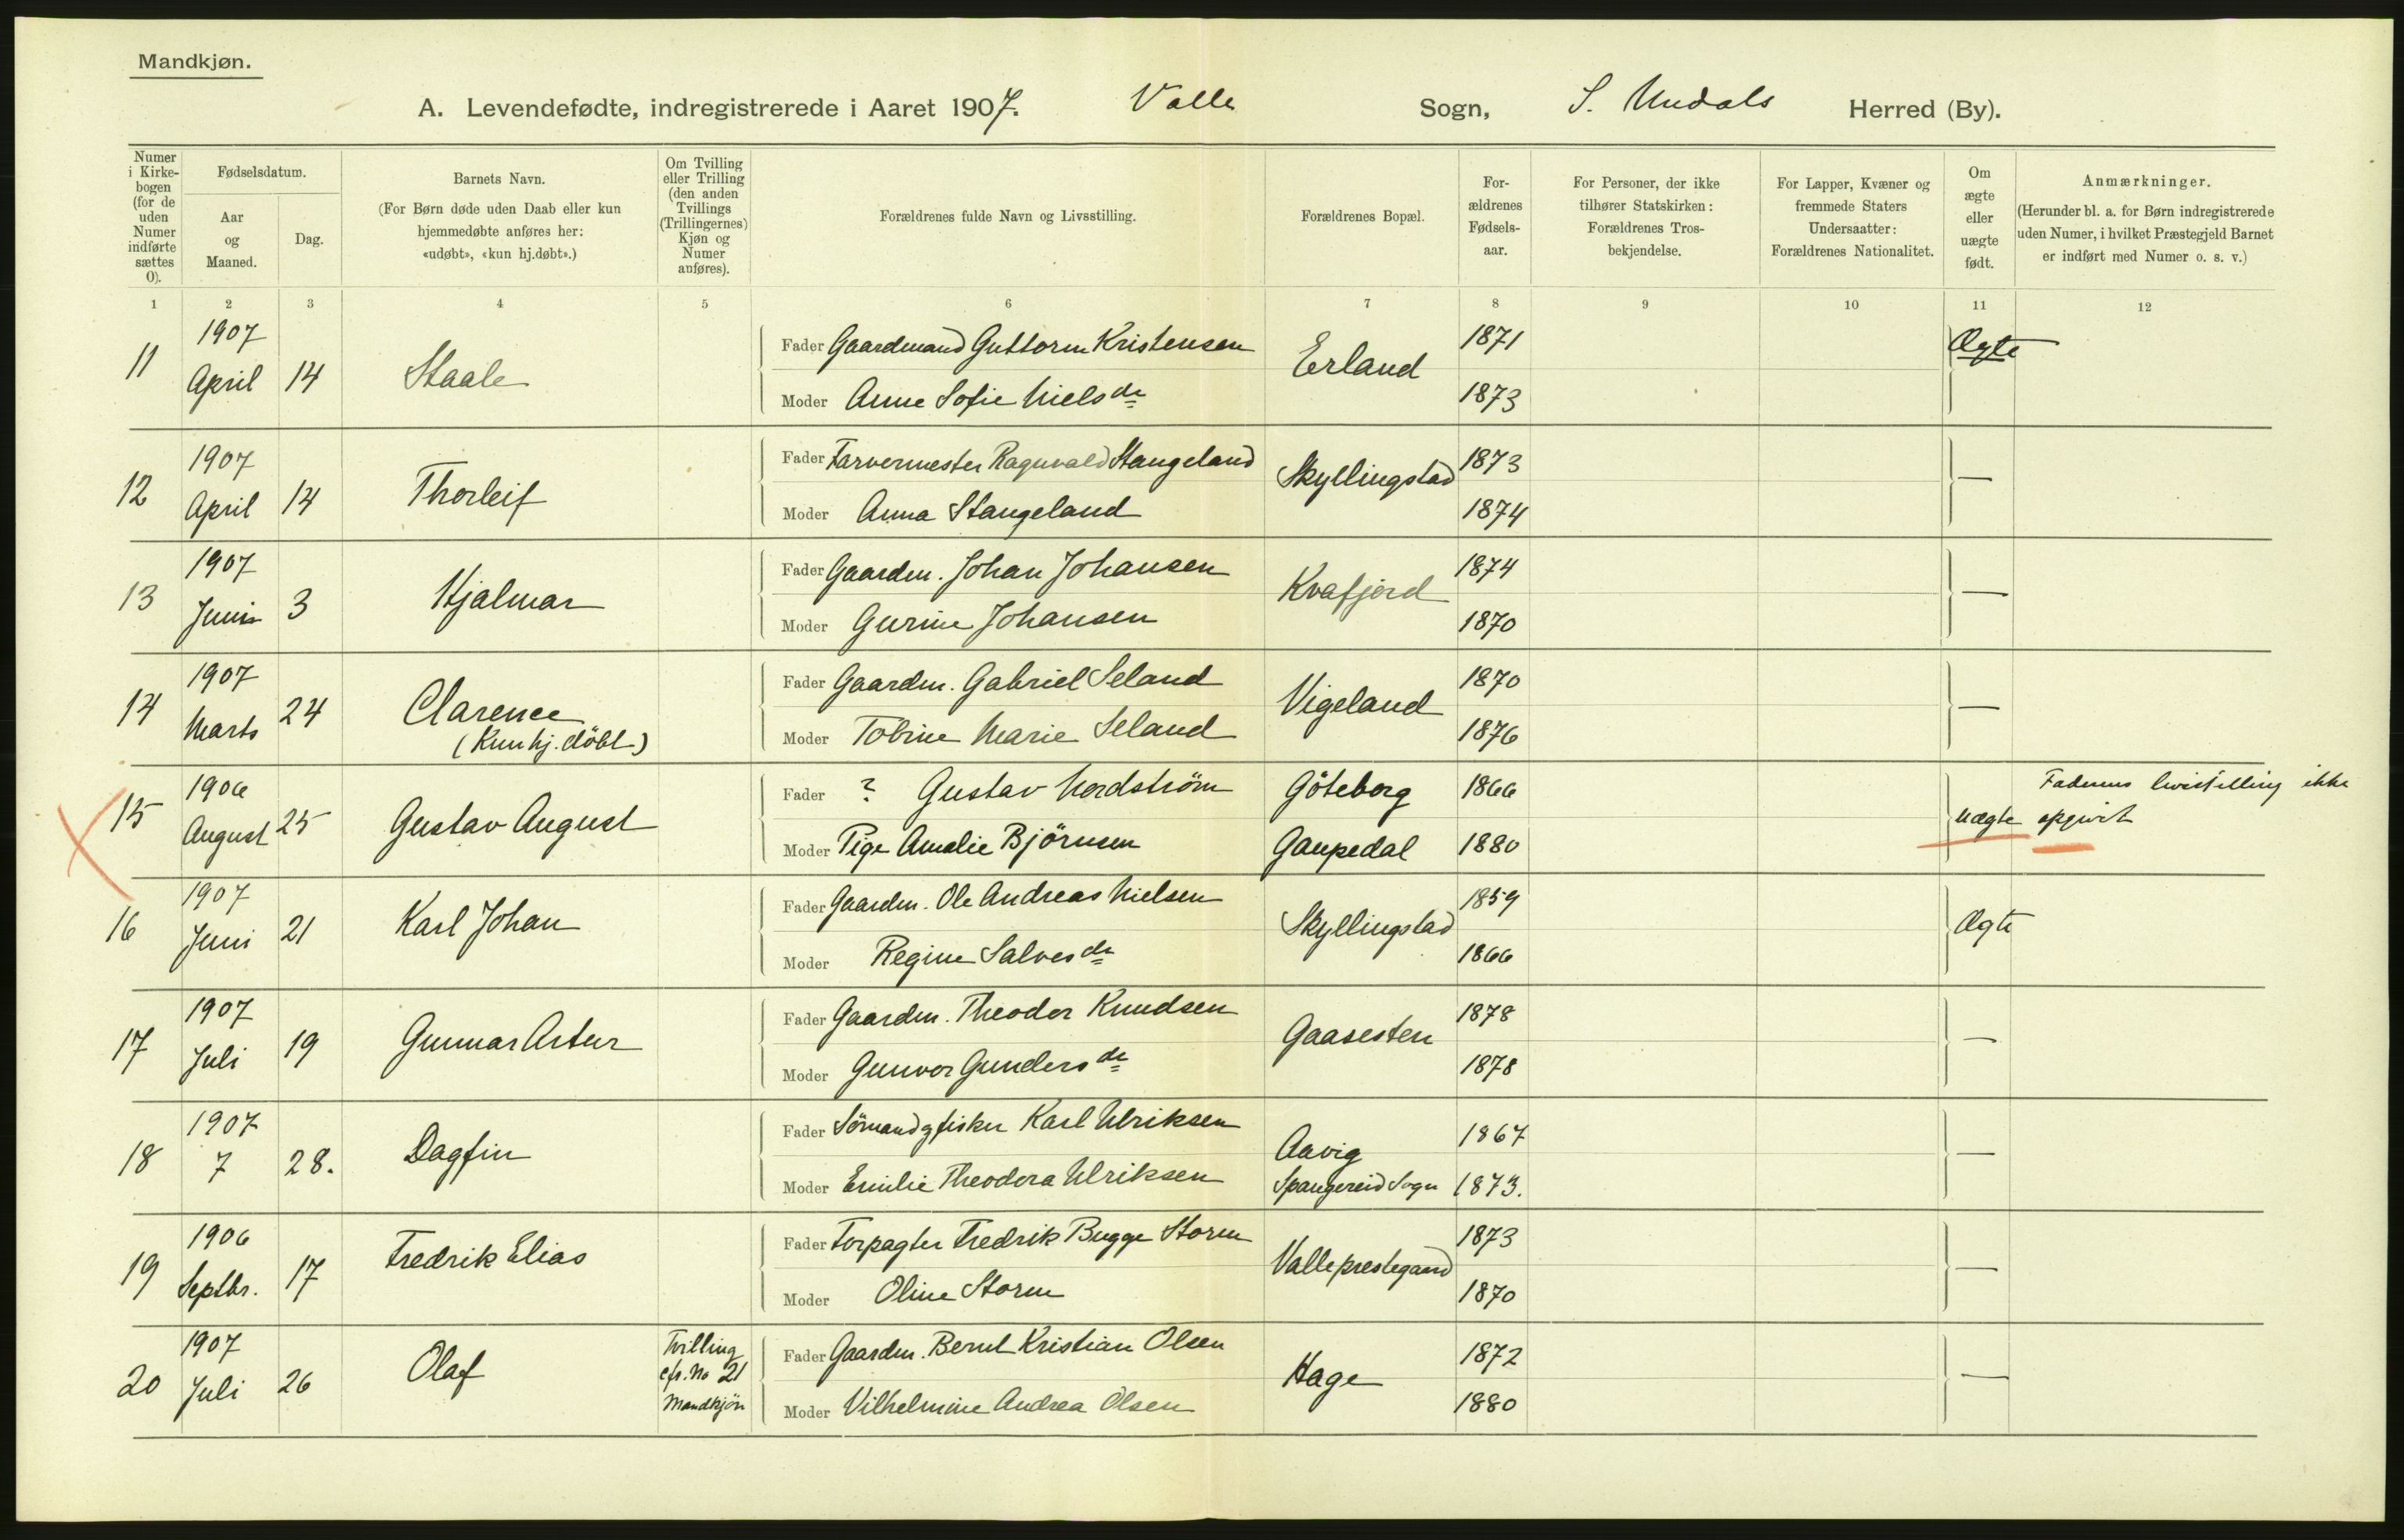 Mandkjøn.
A. Levendefødte, indregistrerede i Aaret 1907. Valle Sogn, S. Undals Herred (By).
Numer i Kirkebogen (for de uden Numer indførte sættes 0).
Fødselsdatum.
Aar og Maaned.
Dag.
Barnets Navn.
(For Børn døde uden Daab eller kun hjemmedøbte anføres her: «udøbt», «kun hj.døbt».)
Om Tvilling eller Trilling (den anden Tvillings (Trillingernes) Kjøn og Numer anføres).
Forældrenes fulde Navn og Livsstilling.
Forældrenes Bopæl.
Forældrenes Fødselsaar.
For Personer, der ikke tilhører Statskirken: Forældrenes Trosbekjendelse.
For Lapper, Kvæner og fremmede Staters Undersaatter: Forældrenes Nationalitet.
Om ægte eller uægte født.
Anmærkninger.
(Herunder bl. a. for Børn indregistrerede uden Numer, i hvilket Præstegjeld Barnet er indført med Numer o. s. v.)
1 2 3 4 5 6 7 8 9 10 11 12
11 1907 April 14 Staale Fader Gaardmand Guttorm Kristensen Erland 1871 Ægte
Moder Anne Sofie Nielsdr 1873
12 1907 April 14 Thorleif Fader Farvermester Ragnvald Stangeland Skyllingstad 1873 —
Moder Anna Stangeland 1874
13 1907 Juni 3 Hjalmar Fader Gaardm. Johan Johansen Kvafjord 1874 —
Moder Gurine Johansen 1870
14 1907 Marts 24 Clarence Fader Gaardm. Gabriel Seland Vigeland 1870 —
(Kun hj. döbt) Moder Tobine Marie Seland 1876
15 1906 August 25 Gustav August Fader ? Gustav Nordström Göteborg 1866 Uægte Faderens livsstilling ikke
Moder Pige Amalie Björnsen Gaupedal 1880 opgivet
16 1907 Juni 21 Karl Johan Fader Gaardm. Ole Andreas Nielsen Skyllingstad 1859 Ægte
Moder Regine Salvesdr 1866
17 1907 Juli 19 Gunnar Artur Fader Gaardm. Theodor Knudsen Gaasesten 1878 —
Moder Gunvor Gundersdr 1878
18 1907 7 28. Dagfin Fader Sömand g fisker Karl Ulriksen Aavig 1867 —
Moder Emilie Theodora Ulriksen Spangereid Sogn 1873.
19 1906 Septbr. 17 Fredrik Elias Fader Forpagter Fredrik Bugge Storm Valle prestegaard 1873 —
Moder Oline Storm 1870
20 1907 Juli 26 Olaf Tvilling cfr. No 21 Mandkjön Fader Gaardm. Bernt Kristian Olsen Hage 1872 —
Moder Vilhelmine Andrea Olsen 1880